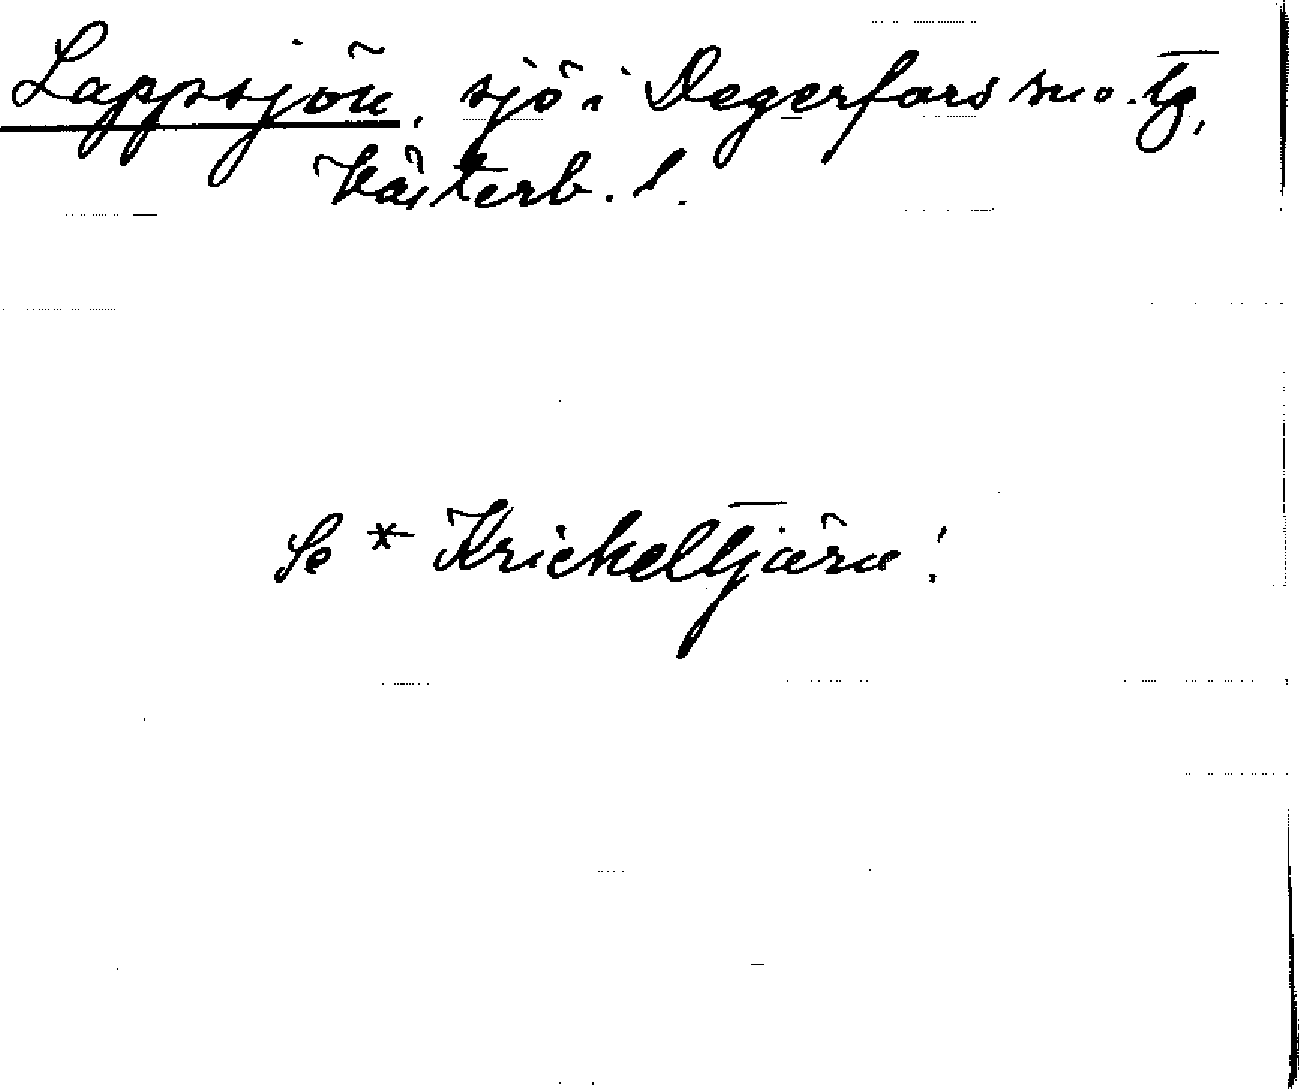 Lappsjön, sjö i Degerfors sn o. tg,
Västerb. l.
Se * Krickeltjärn!